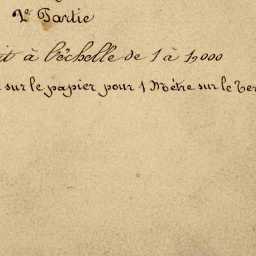 2e Partie
à l'échelle de 1 à 1,000
sur le papier pour 1 Mètre sur le